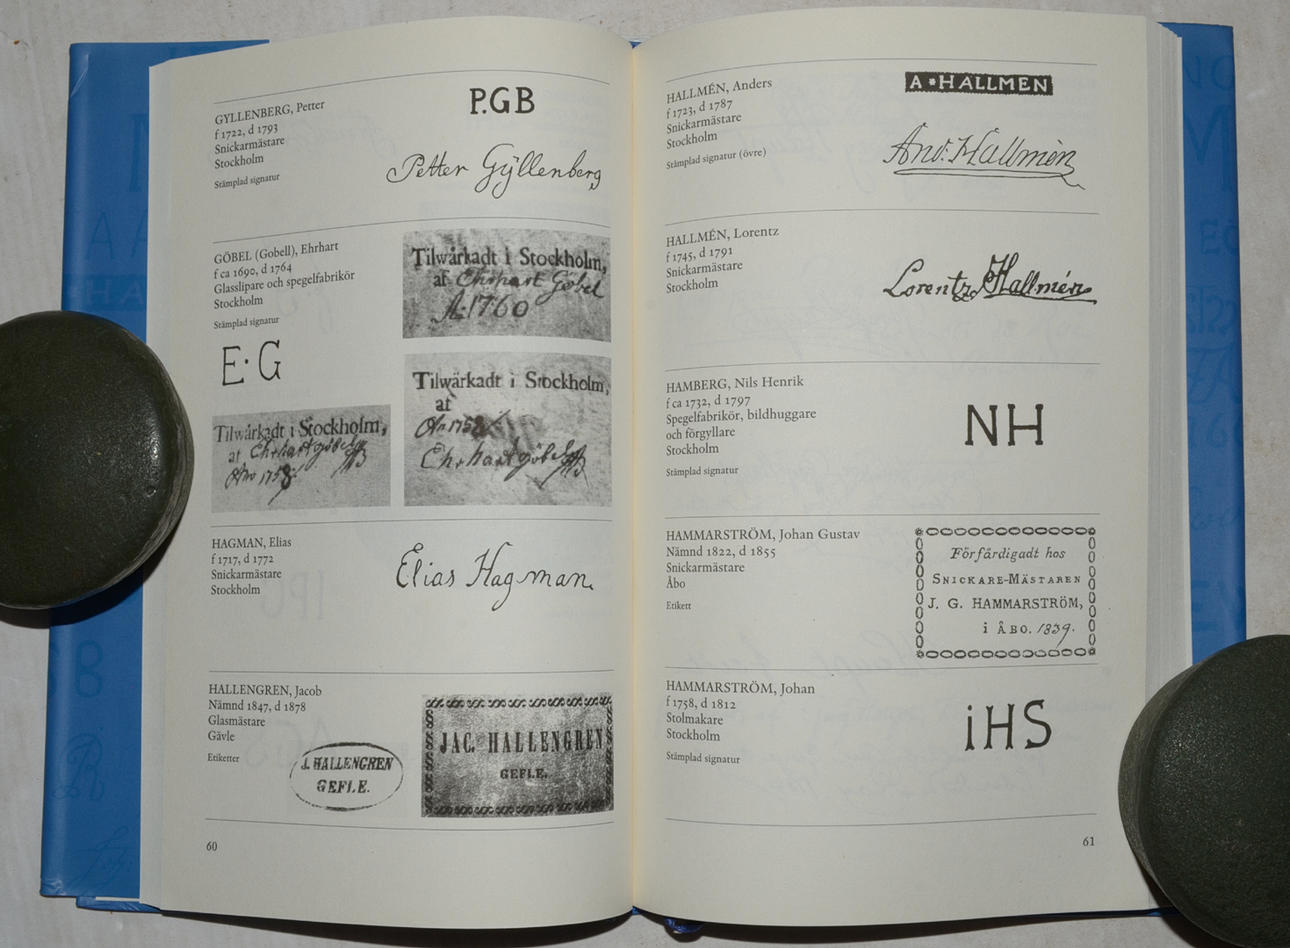 GYLLENBERG, Petter
f 1722, d 1793
Snickarmästare
Stockholm
Stämplad signatur
P.GB
Petter Gÿllenberg
GÖBEL (Gobell), Ehrhart
f ca 1690, d 1764
Glasslipare och spegelfabrikör
Stockholm
Stämplad signatur
E·G
Tilwårkadt i Stockholm,
af Ehrhart Göbel
A:1760
Tilwärkadt i Stockholm,
af
Ao 1758
Ehrhart göbel
Tilwärkadt i Stockholm,
af Ehrhart göbel
Ano 1758
HAGMAN, Elias
f 1717, d 1772
Snickarmästare
Stockholm
Elias Hagman
HALLENGREN, Jacob
Nämnd 1847, d 1878
Glasmästare
Gävle
Etiketter
J. HALLENGREN
GEFLE.
JAC. HALLENGREN
GEFLE.
60
HALLMÉN, Anders
f 1723, d 1787
Snickarmästare
Stockholm
Stämplad signatur (övre)
A*HALLMEN
And. Hallmén
HALLMÉN, Lorentz
f 1745, d 1791
Snickarmästare
Stockholm
Lorentz Hallmén
HAMBERG, Nils Henrik
f ca 1732, d 1797
Spegelfabrikör, bildhuggare
och förgyllare
Stockholm
Stämplad signatur
NH
HAMMARSTRÖM, Johan Gustav
Nämnd 1822, d 1855
Snickarmästare
Åbo
Etikett
Förfärdigadt hos
SNICKARE-MÄSTAREN
J. G. HAMMARSTRÖM,
i ÅBO. 1839.
HAMMARSTRÖM, Johan
f 1758, d 1812
Stolmakare
Stockholm
Stämplad signatur
iHS
61